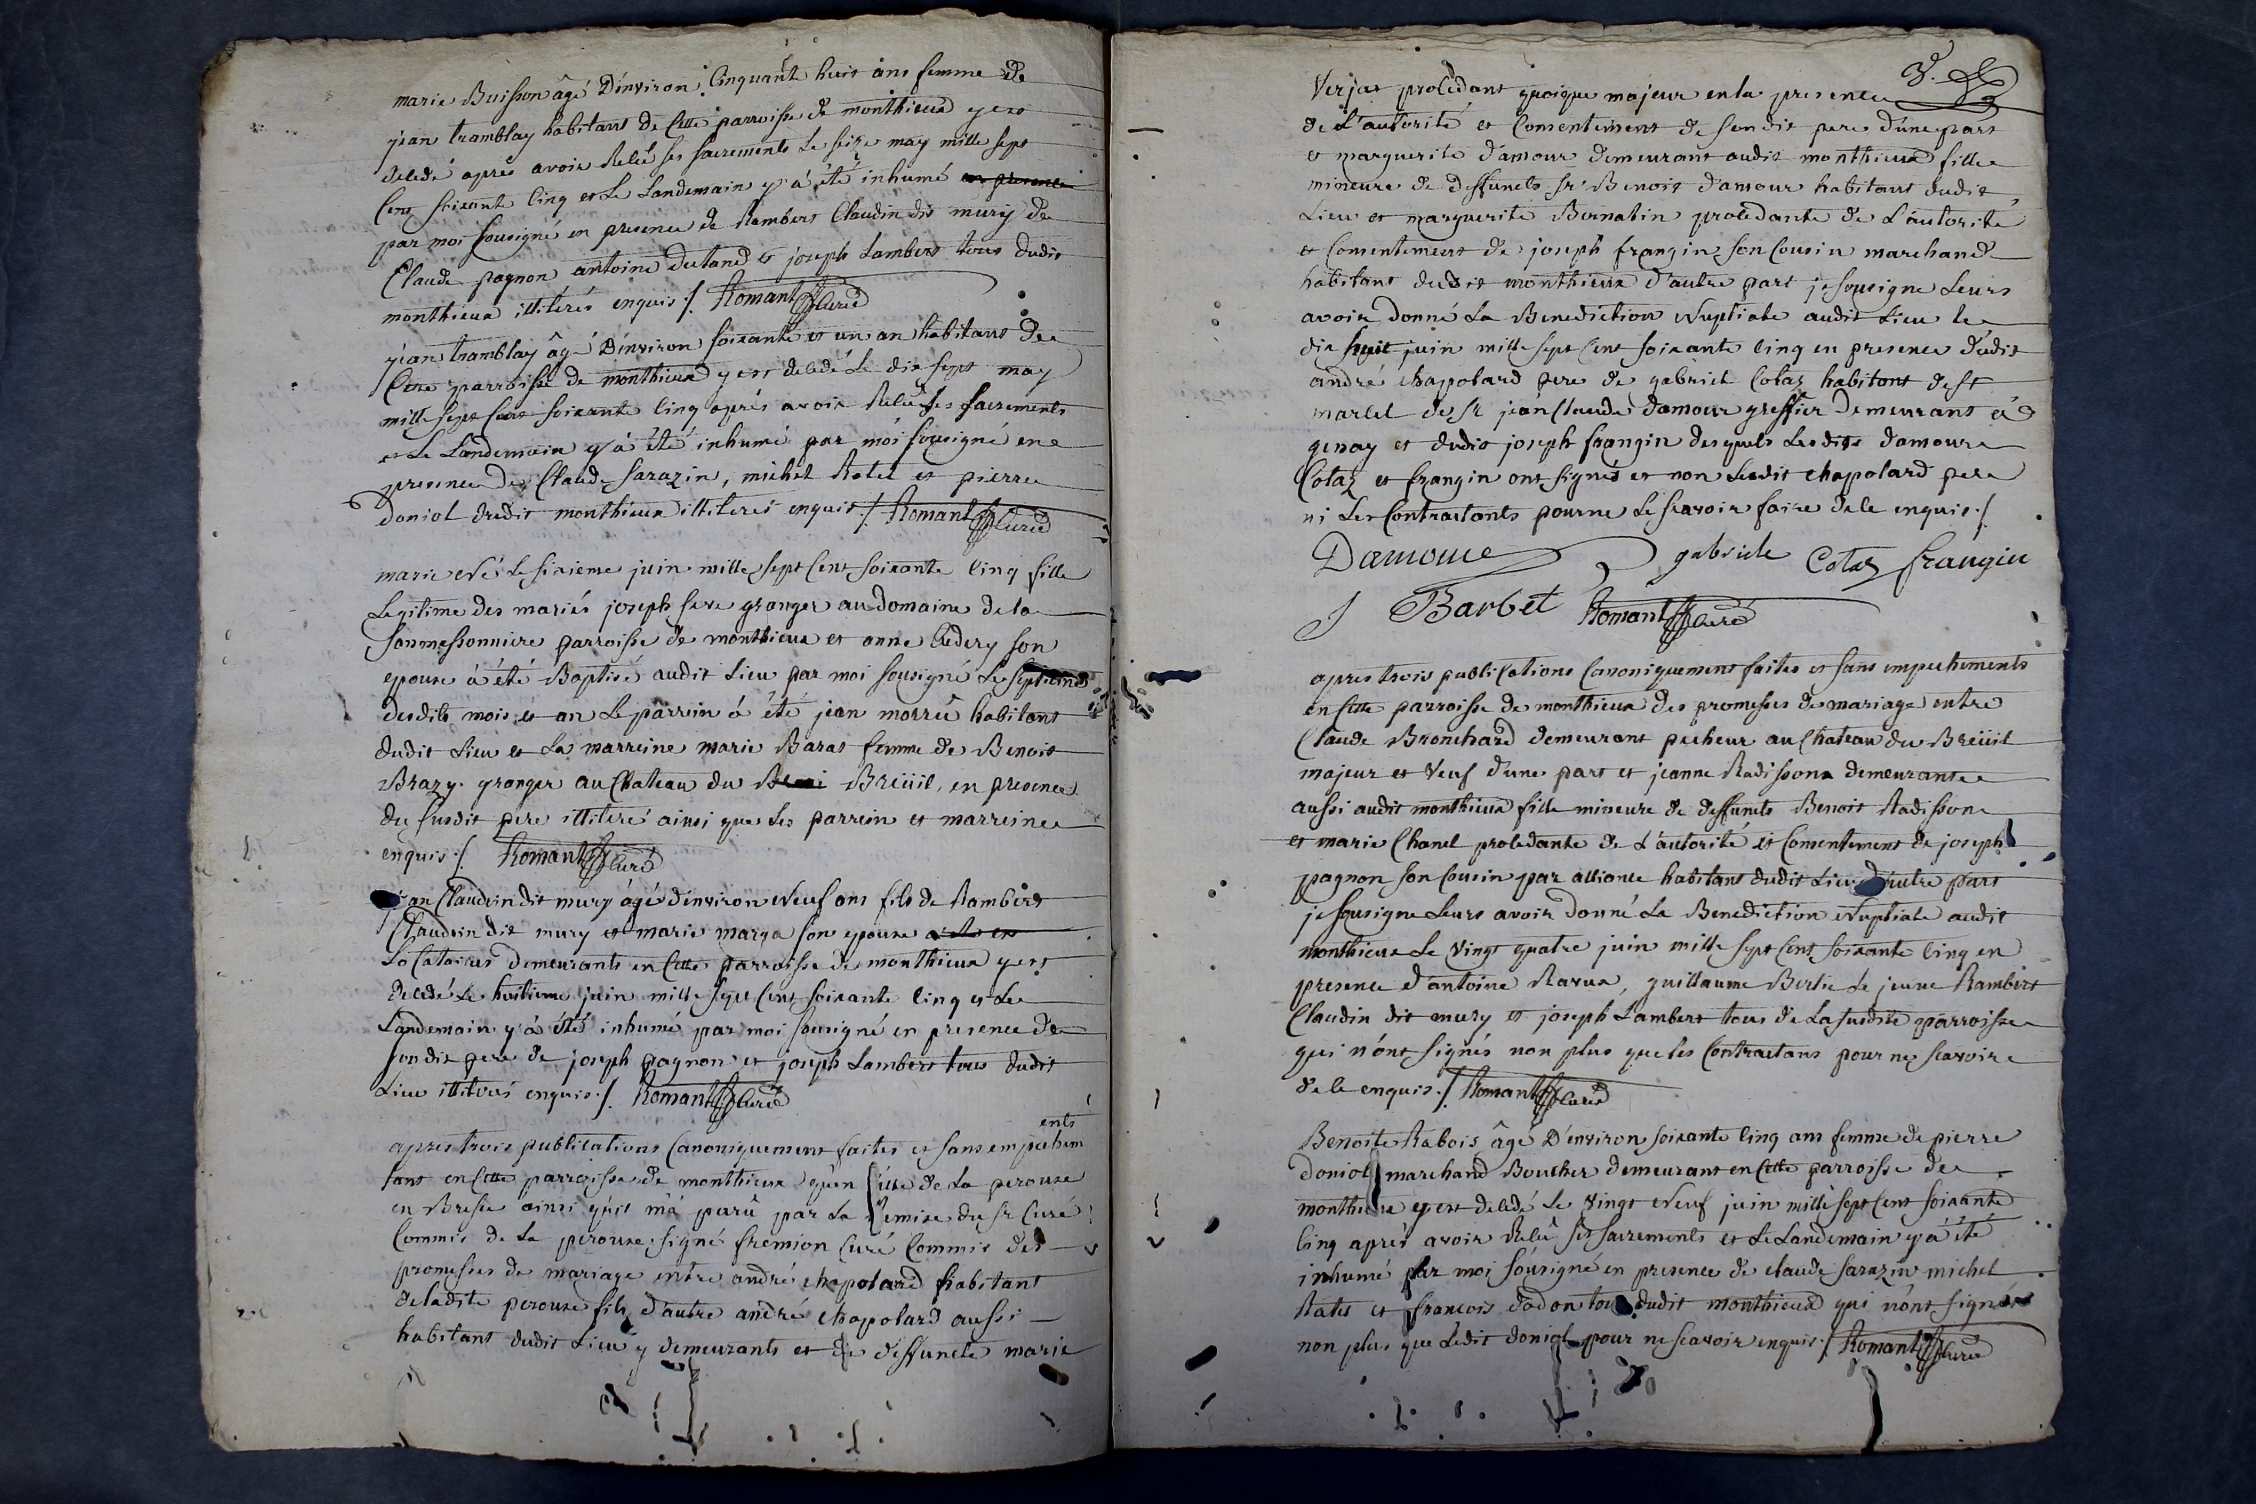 marie Buisson âgé D'environ Cinquant huit ans femme de
jean tramblay habitant de Cette parroisse de monthieux y est
decedé aprés avoir Relû ses sacrements Le seize may mille sept
Cent soixant Cinq et Le Landemain y á été inhumé en presence
par moi sousigné en presence de Rambert Claudin dit mury de
Claude pagnon antoine dutand et joseph Lambert tous dudit
monthieux illiterés enquis ./. Romant Curé
jean tramblay âgé D'environ soixante et un an habitant de
Cette parroisse de monthieux y est decedé Le dix sept may
mille sept Cent soixante Cinq aprés avoir Relû ses sacrements
et Le Landemain y á été inhumé par moi sousigné en
presence de Claude sarazin, michel Ratel et pierre
doniol dudit monthieux illiterés enquis ./. Romant Curé
marie Né Le sixieme juin mille sept Cent soixante Cinq fille
Legitime des mariés joseph seve granger au domaine de la
sonmessonniere parroisse de monthieux et anne Cudery son
epouse á été Baptisé audit Lieu par moi sousigné Le septieme
desdits mois et an Le parrein á été jean morrû habitant
dudit Lieu et La marreine marie Baras femme de Benoit
Brazy granger au Chateau du Breüil, en presence
du susdit pere illiteré ainsi que Les parrein et marreine
enquis ./. Romant Curé
jean Claudin dit mury âgé d'environ Neuf ans fils de Rambert
Claudin dit mury et marie marga son epouse
Locataires demeurants en Cette parroisse de monthieux y est
decedé Le huitieme juin mille sept Cent soixante Cinq et Le
Landemain y á été inhumé par moi sousigné en presence de
sondit pere de joseph pagnon et joseph Lambert tous dudit
Lieu illiterés enquis ./. Romant Curé
ents
apres trois publications Canoniquement faites et sans empechem
tant en Cette parroisse de monthieux qu'en Celle de La perouse
en Bresse ainsi qu'il m'á parû par La Remise du sr Curé
Commis de La perouse signé fremion Curé Commis des
promesses de mariage entre andré chapolard habitant
deladite perouse fils d'autre andré chapolard aussi
habitant dudit Lieu y demeurants et de deffuncte marie
3.
Verjat procedant quoique majeur en la presence
de L'autorité et Consentement de sondit pere d'une part
et marguerite d'amour demeurant audit monthieux fille
mineure de deffuncts sr Benoit d'amour habitant dudit
Lieu et marguerite Bernalin procedante de L'autorité
et Consentement de joseph frangin son Cousin marchand
habitant dudit monthieux d'autre part je sousigne Leurs
avoir donné La Benediction Nuptiale audit Lieu le
dix huit juin mille sept Cent soixante Cinq en presence dudit
andré chapolard pere de gabriel Cotaz habitant de st
marcel de sr jean Claude d'amour greffier demeurant á
genay et dudit joseph frangin desquels Lesdits damour
Cotaz et frangin ont signés et non Ledit chapolard pere
ni Les Contractants pour ne Le scavoir faire de le enquis ./.
Damour gabriele Cotaz frangin
J Barbet Romant Curé
apres trois publications Canoniquement faites et sans empechements
en Cette parroisse de monthieux des promesses de mariage entre
Claude Bronchard demeurant pecheur au Chateau du Breüil
majeur et Veuf d'une part et jeanne Radisson demeurante
aussi audit monthieux fille mineure de deffuncts Benoit Radisson
et marie Chanel procedante de L'autorité et Consentement de joseph
pagnon son Cousin par alliance habitant dudit Lieu d'autre part
je sousigne Leurs avoir donné La Benediction Nuptiale audit
monthieux Le Vingt quatre juin mille sept Cent soixante Cinq en
presence d'antoine Ravux, guillaume Bertie Le jeune Rambert
Claudin dit mury et joseph Lambert tous de La susdite parroisse
qui n'ont signés non plus que les Contractans pour ne scavoir
de le enquis ./. Romant Curé
Benoite Rabois âgé D'environ soixante Cinq ans femme de pierre
doniol marchand Boucher demeurant en Cette parroisse de
monthieux y est decedé Le Vingt Neuf juin mille sept Cent soixante
Cinq aprés avoir Relû ses sacrements et Le Landemain y á été
inhumé par moi sousigné en presence de claude sarazin michel
Ratel et francois dadon tous dudit monthieux qui n'ont signé
non plus que Ledit doniol pour ne scavoir enquis ./. Romant Curé